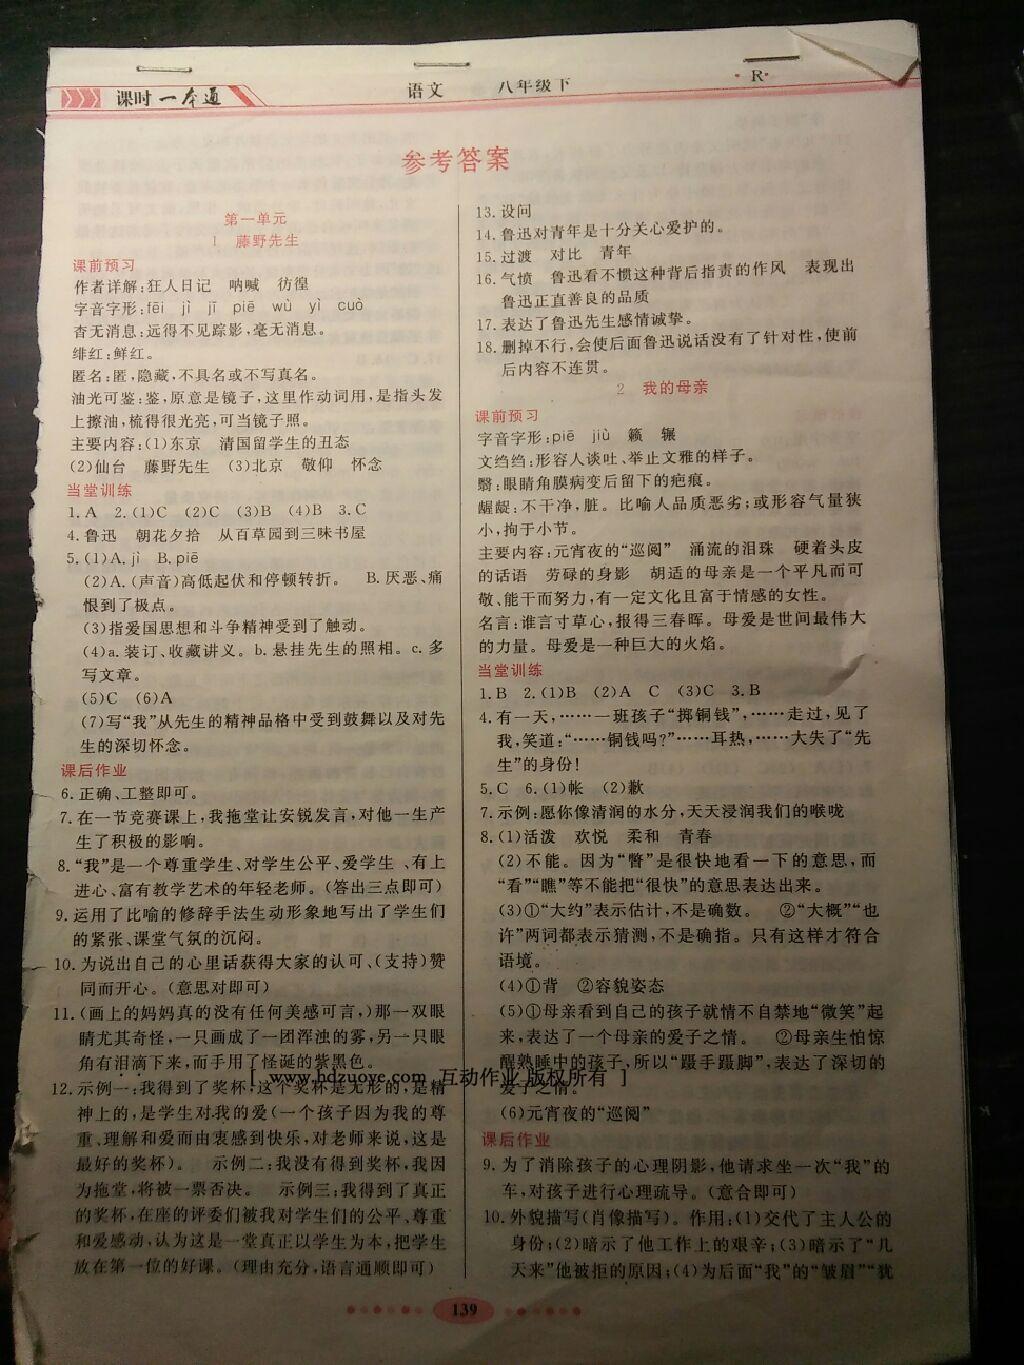 课时一本通
语文 八年级下
·R·
参考答案
第一单元
1 藤野先生
课前预习
作者详解:狂人日记 呐喊 彷徨
字音字形:fēi jì jī piē wù yì cuò
杳无消息:远得不见踪影,毫无消息。
绯红:鲜红。
匿名:匿,隐藏,不具名或不写真名。
油光可鉴:鉴,原意是镜子,这里作动词用,是指头发
上擦油,梳得很光亮,可当镜子照。
主要内容:(1)东京 清国留学生的丑态
(2)仙台 藤野先生 (3)北京 敬仰 怀念
当堂训练
1.A 2.(1)C (2)C (3)B (4)B 3.C
4.鲁迅 朝花夕拾 从百草园到三味书屋
5.(1)A.jì B.piē
(2)A.(声音)高低起伏和停顿转折。 B.厌恶、痛
恨到了极点。
(3)指爱国思想和斗争精神受到了触动。
(4)a.装订、收藏讲义。b.悬挂先生的照相。c.多
写文章。
(5)C (6)A
(7)写“我”从先生的精神品格中受到鼓舞以及对先
生的深切怀念。
课后作业
6.正确、工整即可。
7.在一节竞赛课上,我拖堂让安锐发言,对他一生产
生了积极的影响。
8.“我”是一个尊重学生、对学生公平、爱学生、有上
进心、富有教学艺术的年轻老师。(答出三点即可)
9.运用了比喻的修辞手法生动形象地写出了学生们
的紧张、课堂气氛的沉闷。
10.为说出自己的心里话获得大家的认可、(支持)赞
同而开心。(意思对即可)
11.(画上的妈妈真的没有任何美感可言,)那一双眼
睛尤其奇怪,一只画成了一团浑浊的雾,另一只眼
角有泪滴下来,而手用了怪诞的紫黑色。
12.示例一:我得到了奖杯,这个奖杯是无形的,是精
神上的,是学生对我的爱(一个孩子因为我的尊
重、理解和爱而由衷感到快乐,对老师来说,这是
最好的奖杯)。 示例二:我没有得到奖杯,我因
为拖堂,将被一票否决。 示例三:我得到了真正
的奖杯,在座的评委们被我对学生们的公平、尊重
和爱感动,认为这是一堂真正以学生为本,把学生
放在第一位的好课。(理由充分,语言通顺即可)
13.设问
14.鲁迅对青年是十分关心爱护的。
15.过渡 对比 青年
16.气愤 鲁迅看不惯这种背后指责的作风 表现出
鲁迅正直善良的品质
17.表达了鲁迅先生感情诚挚。
18.删掉不行,会使后面鲁迅说话没有了针对性,使前
后内容不连贯。
2 我的母亲
课前预习
字音字形:piē jiù 籁 辗
文绉绉:形容人谈吐、举止文雅的样子。
翳:眼睛角膜病变后留下的疤痕。
龌龊:不干净,脏。比喻人品质恶劣;或形容气量狭
小,拘于小节。
主要内容:元宵夜的“巡阅” 涌流的泪珠 硬着头皮
的话语 劳碌的身影 胡适的母亲是一个平凡而可
敬、能干而努力,有一定文化且富于情感的女性。
名言:谁言寸草心,报得三春晖。母爱是世间最伟大
的力量。母爱是一种巨大的火焰。
当堂训练
1.B 2.(1)B (2)A C (3)C 3.B
4.有一天,……一班孩子“掷铜钱”,……走过,见了
我,笑道:“……铜钱吗?”……耳热,……大失了“先
生”的身份!
5.C 6.(1)帐 (2)歉
7.示例:愿你像清润的水分,天天浸润我们的喉咙
8.(1)活泼 欢悦 柔和 青春
(2)不能。因为“瞥”是很快地看一下的意思,而
“看”“瞧”等不能把“很快”的意思表达出来。
(3)①“大约”表示估计,不是确数。 ②“大概”“也
许”两词都表示猜测,不是确指。只有这样才符合
语境。
(4)①背 ②容貌姿态
(5)①母亲看到自己的孩子就情不自禁地“微笑”起
来,表达了一个母亲的爱子之情。 ②母亲生怕惊
醒熟睡中的孩子,所以“蹑手蹑脚”,表达了深切的
爱子之情。
(6)元宵夜的“巡阅”
课后作业
9.为了消除孩子的心理阴影,他请求坐一次“我”的
车,对孩子进行心理疏导。(意合即可)
10.外貌描写(肖像描写)。作用:(1)交代了主人公的
身份;(2)暗示了他工作上的艰辛;(3)暗示了“几
天来”他被拒的原因;(4)为后面“我”的“皱眉”“犹
[ www.hdzuoye.com 互动作业 版权所有 ]
139